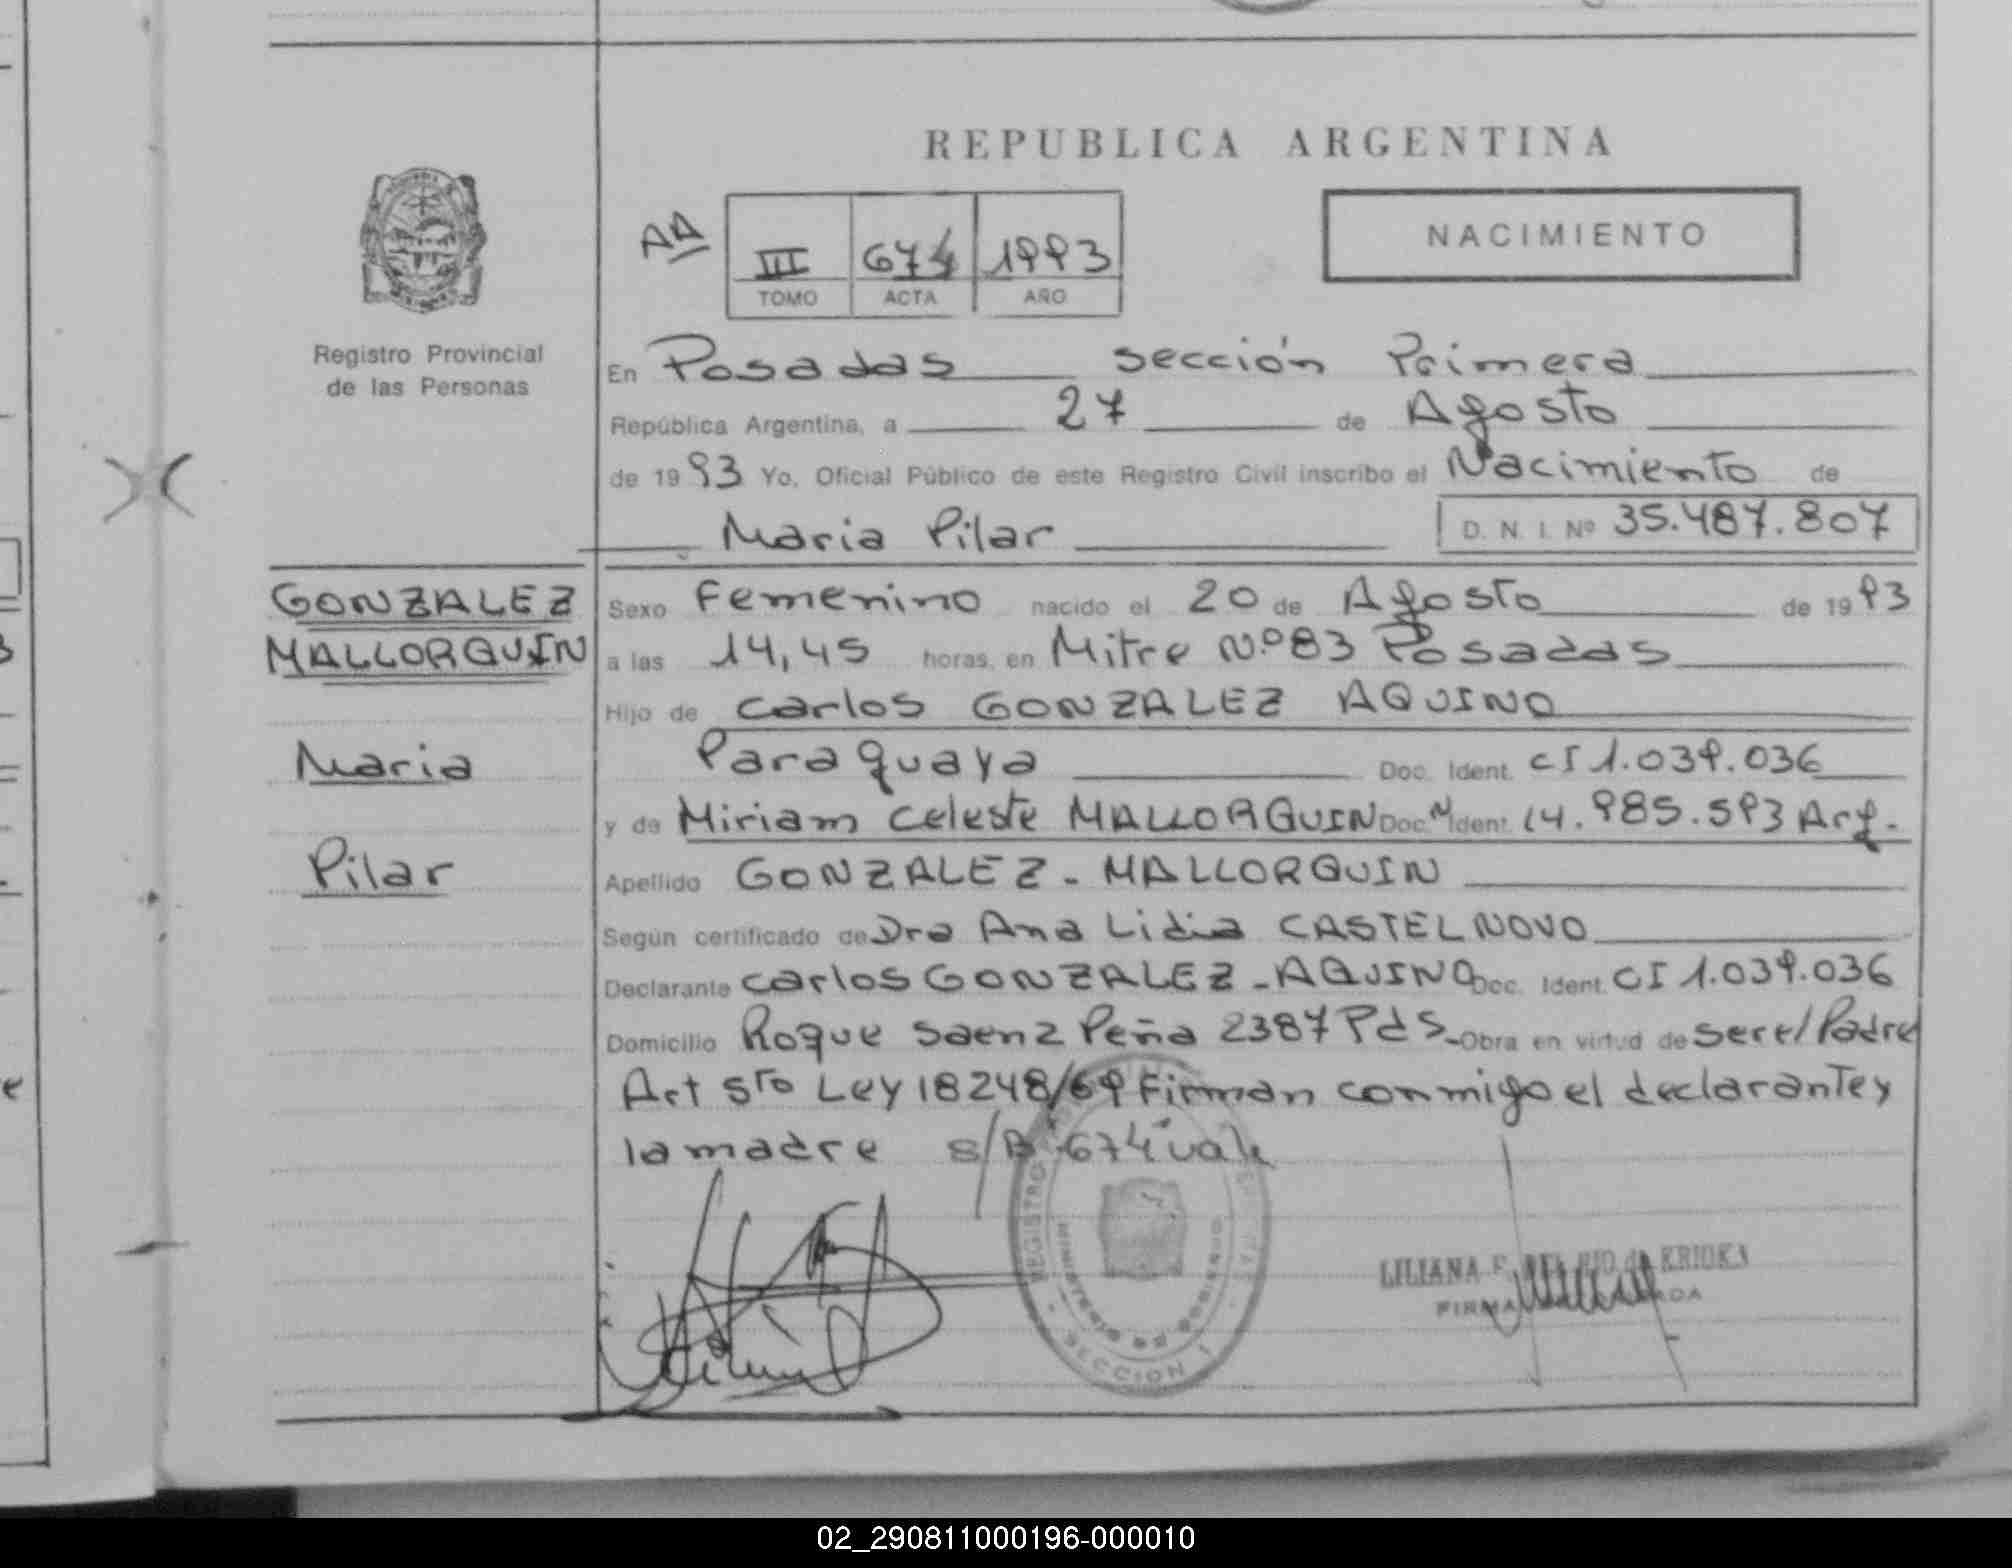 REPUBLICA ARGENTINA
AA
III 674 1993
TOMO ACTA AÑO
NACIMIENTO
Registro Provincial
de las Personas
En Posadas sección Primera
República Argentina, a 27 de Agosto
de 1993 Yo, Oficial Público de este Registro Civil inscribo el Nacimiento de
Maria Pilar D. N. I. Nº 35.487.807
GONZALEZ
MALLORQUIN
Maria
Pilar
Sexo Femenino nacido el 20 de Agosto de 1993
a las 14,45 horas, en Mitre Nº 83 Posadas
Hijo de Carlos GONZALEZ AQUINO
Paraguaya Doc. Ident. CI 1.039.036
y de Miriam Celeste MALLORQUIN Doc. Ident. 14.985.593 Arg.
Apellido GONZALEZ - MALLORQUIN
Según certificado de Dra Ana Lidia CASTELNOVO
Declarante Carlos GONZALEZ - AQUINO Doc. Ident. CI 1.039.036
Domicilio Roque Saenz Peña 2387 Pds. Obra en virtud de ser el Padre
Art 5to Ley 18248/69 Firman conmigo el declarante y
la madre s/B 674 vale
REGISTRO
MINISTERIO DE GOBIERNO
SECCION 1
LILIANA F. DEL RIO de KRIUKA
02_290811000196-000010